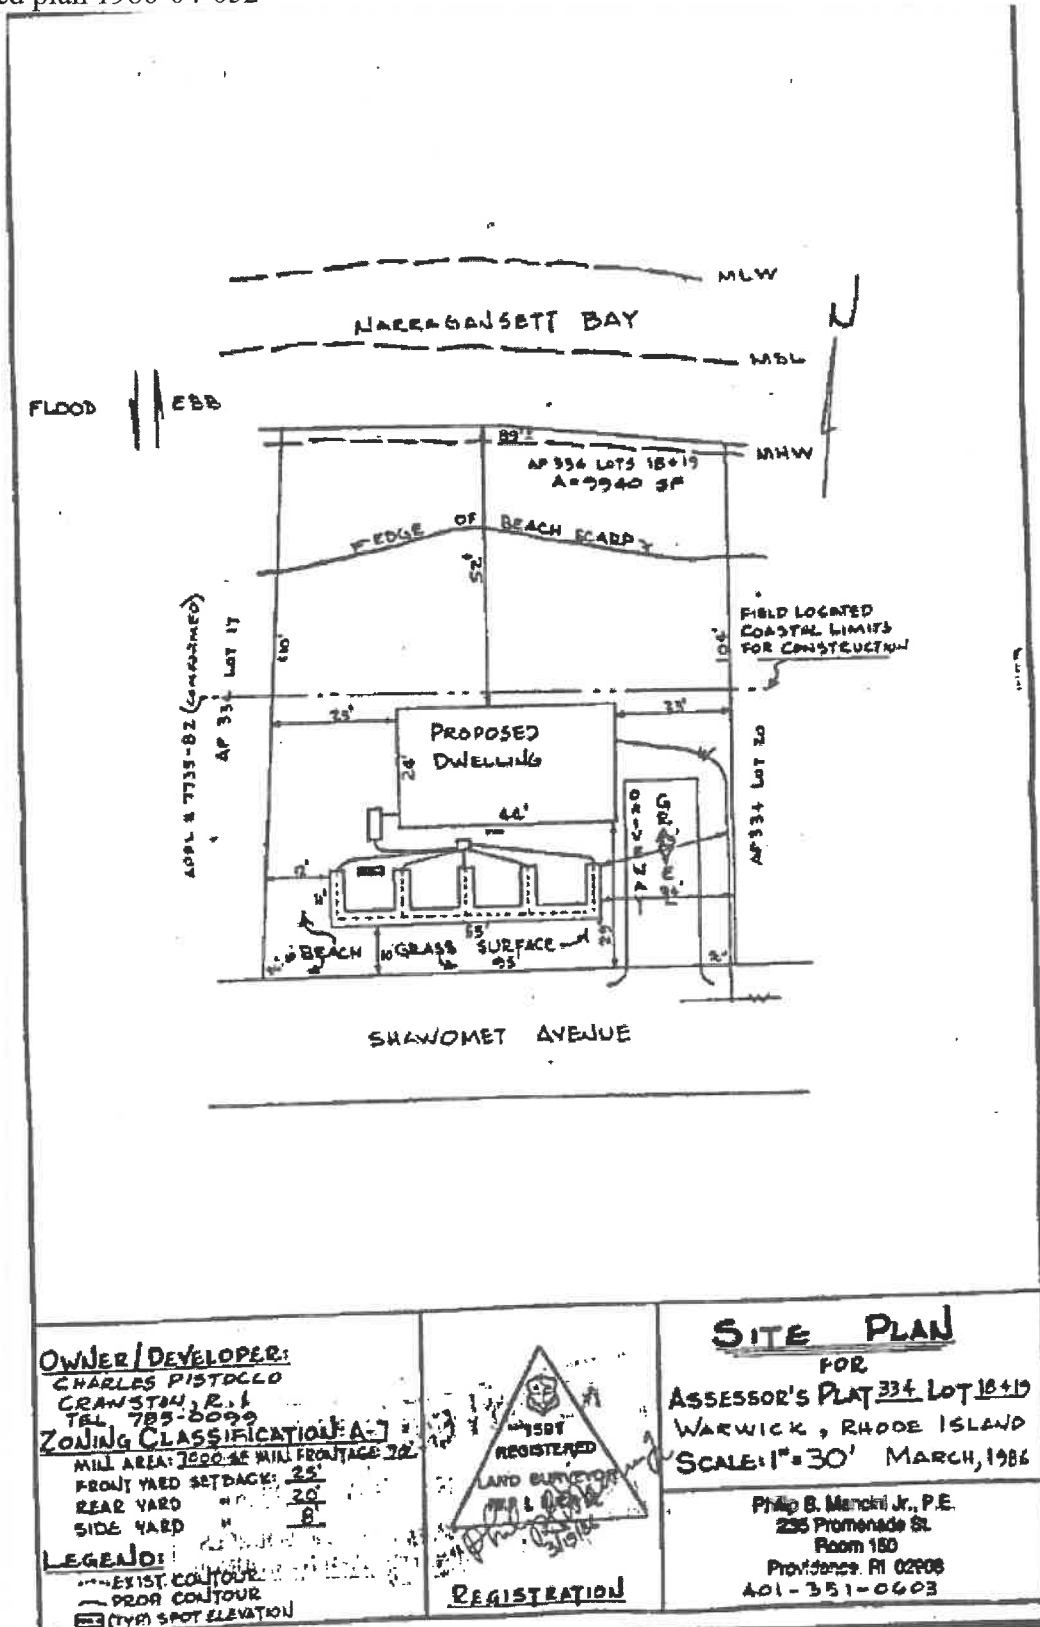 MLW
NARRAGANSETT BAY
N
MSL
FLOOD
EBB
89'±
MHW
AP 334 LOTS 18+19
A=9940 SF
EDGE OF BEACH SCARP
52'
110'
104'
FIELD LOCATED
COASTAL LIMITS
FOR CONSTRUCTION
APPL # 7735-82
AP 334 LOT 17
AP 334 LOT 20
25'
23'
PROPOSED
DWELLING
24'
44'
GRAVEL
DRIVEWAY
12'
55'
29'
BEACH GRASS SURFACE
10'
95'
2'
W
SHAWOMET AVENUE
OWNER/DEVELOPER:
CHARLES PISTOCCO
CRANSTON, R.I.
TEL. 785-0099
ZONING CLASSIFICATION: A-7
MIN AREA: 7000 SF MIN FRONTAGE 70'
FRONT YARD SETBACK: 25'
REAR YARD " 20'
SIDE YARD " 8'
LEGEND:
EXIST. CONTOUR
PROP CONTOUR
(TYP) SPOT ELEVATION
REGISTERED
LAND SURVEYOR
3/19/86
REGISTRATION
SITE PLAN
FOR
ASSESSOR'S PLAT 334 LOT 18+19
WARWICK, RHODE ISLAND
SCALE: 1"=30' MARCH, 1986
Philip B. Mancini Jr., P.E.
235 Promenade St.
Room 160
Providence, RI 02908
401-351-0603